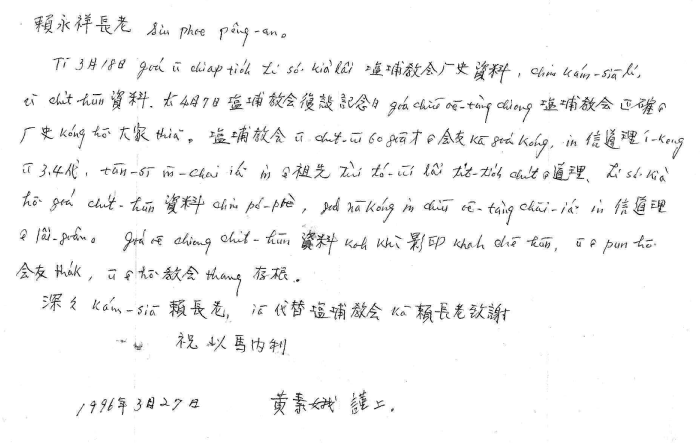 賴永祥長老 Sin phoe pêng-an。
Tī 3月18日 goá ū chiap-tio̍h lí só͘ kià lâi 塩埔教会厂史資料, chin kám-siā lí,
ū chit hūn 資料. 太4月7日 塩埔教会後設記念日 goá chiū ē-tàng chiong 塩埔教会正確ê
厂史 kóng hō͘ 大家 thiaⁿ。塩埔教会 ū chit-ūi 60 goā才ê会友 kā goá kóng, in 信道理 í-keng
ū 3.4代, tān-sī m̄-chai iá in ê 祖先 tùi tó-ūi lâi tit-tio̍h chit ê 道理、lí só͘ kià
hō͘ goá chit-hūn 資料 chin pó-pòe, goá nā kóng in chiū ē-tàng chai-iáⁿ in 信道理
ê lâi-goân。 goá ē chiong chit-hūn 資料 koh khì 影印 khah chē hūn, ū ê pun hō͘
会友 tha̍k, ū ê hō͘ 教会 thang 存根.
深深 kám-siā 賴長老, iā 代替塩埔教会 kā 賴長老致謝
祝以馬内利
1996年3月27日 黄素娥 謹上.